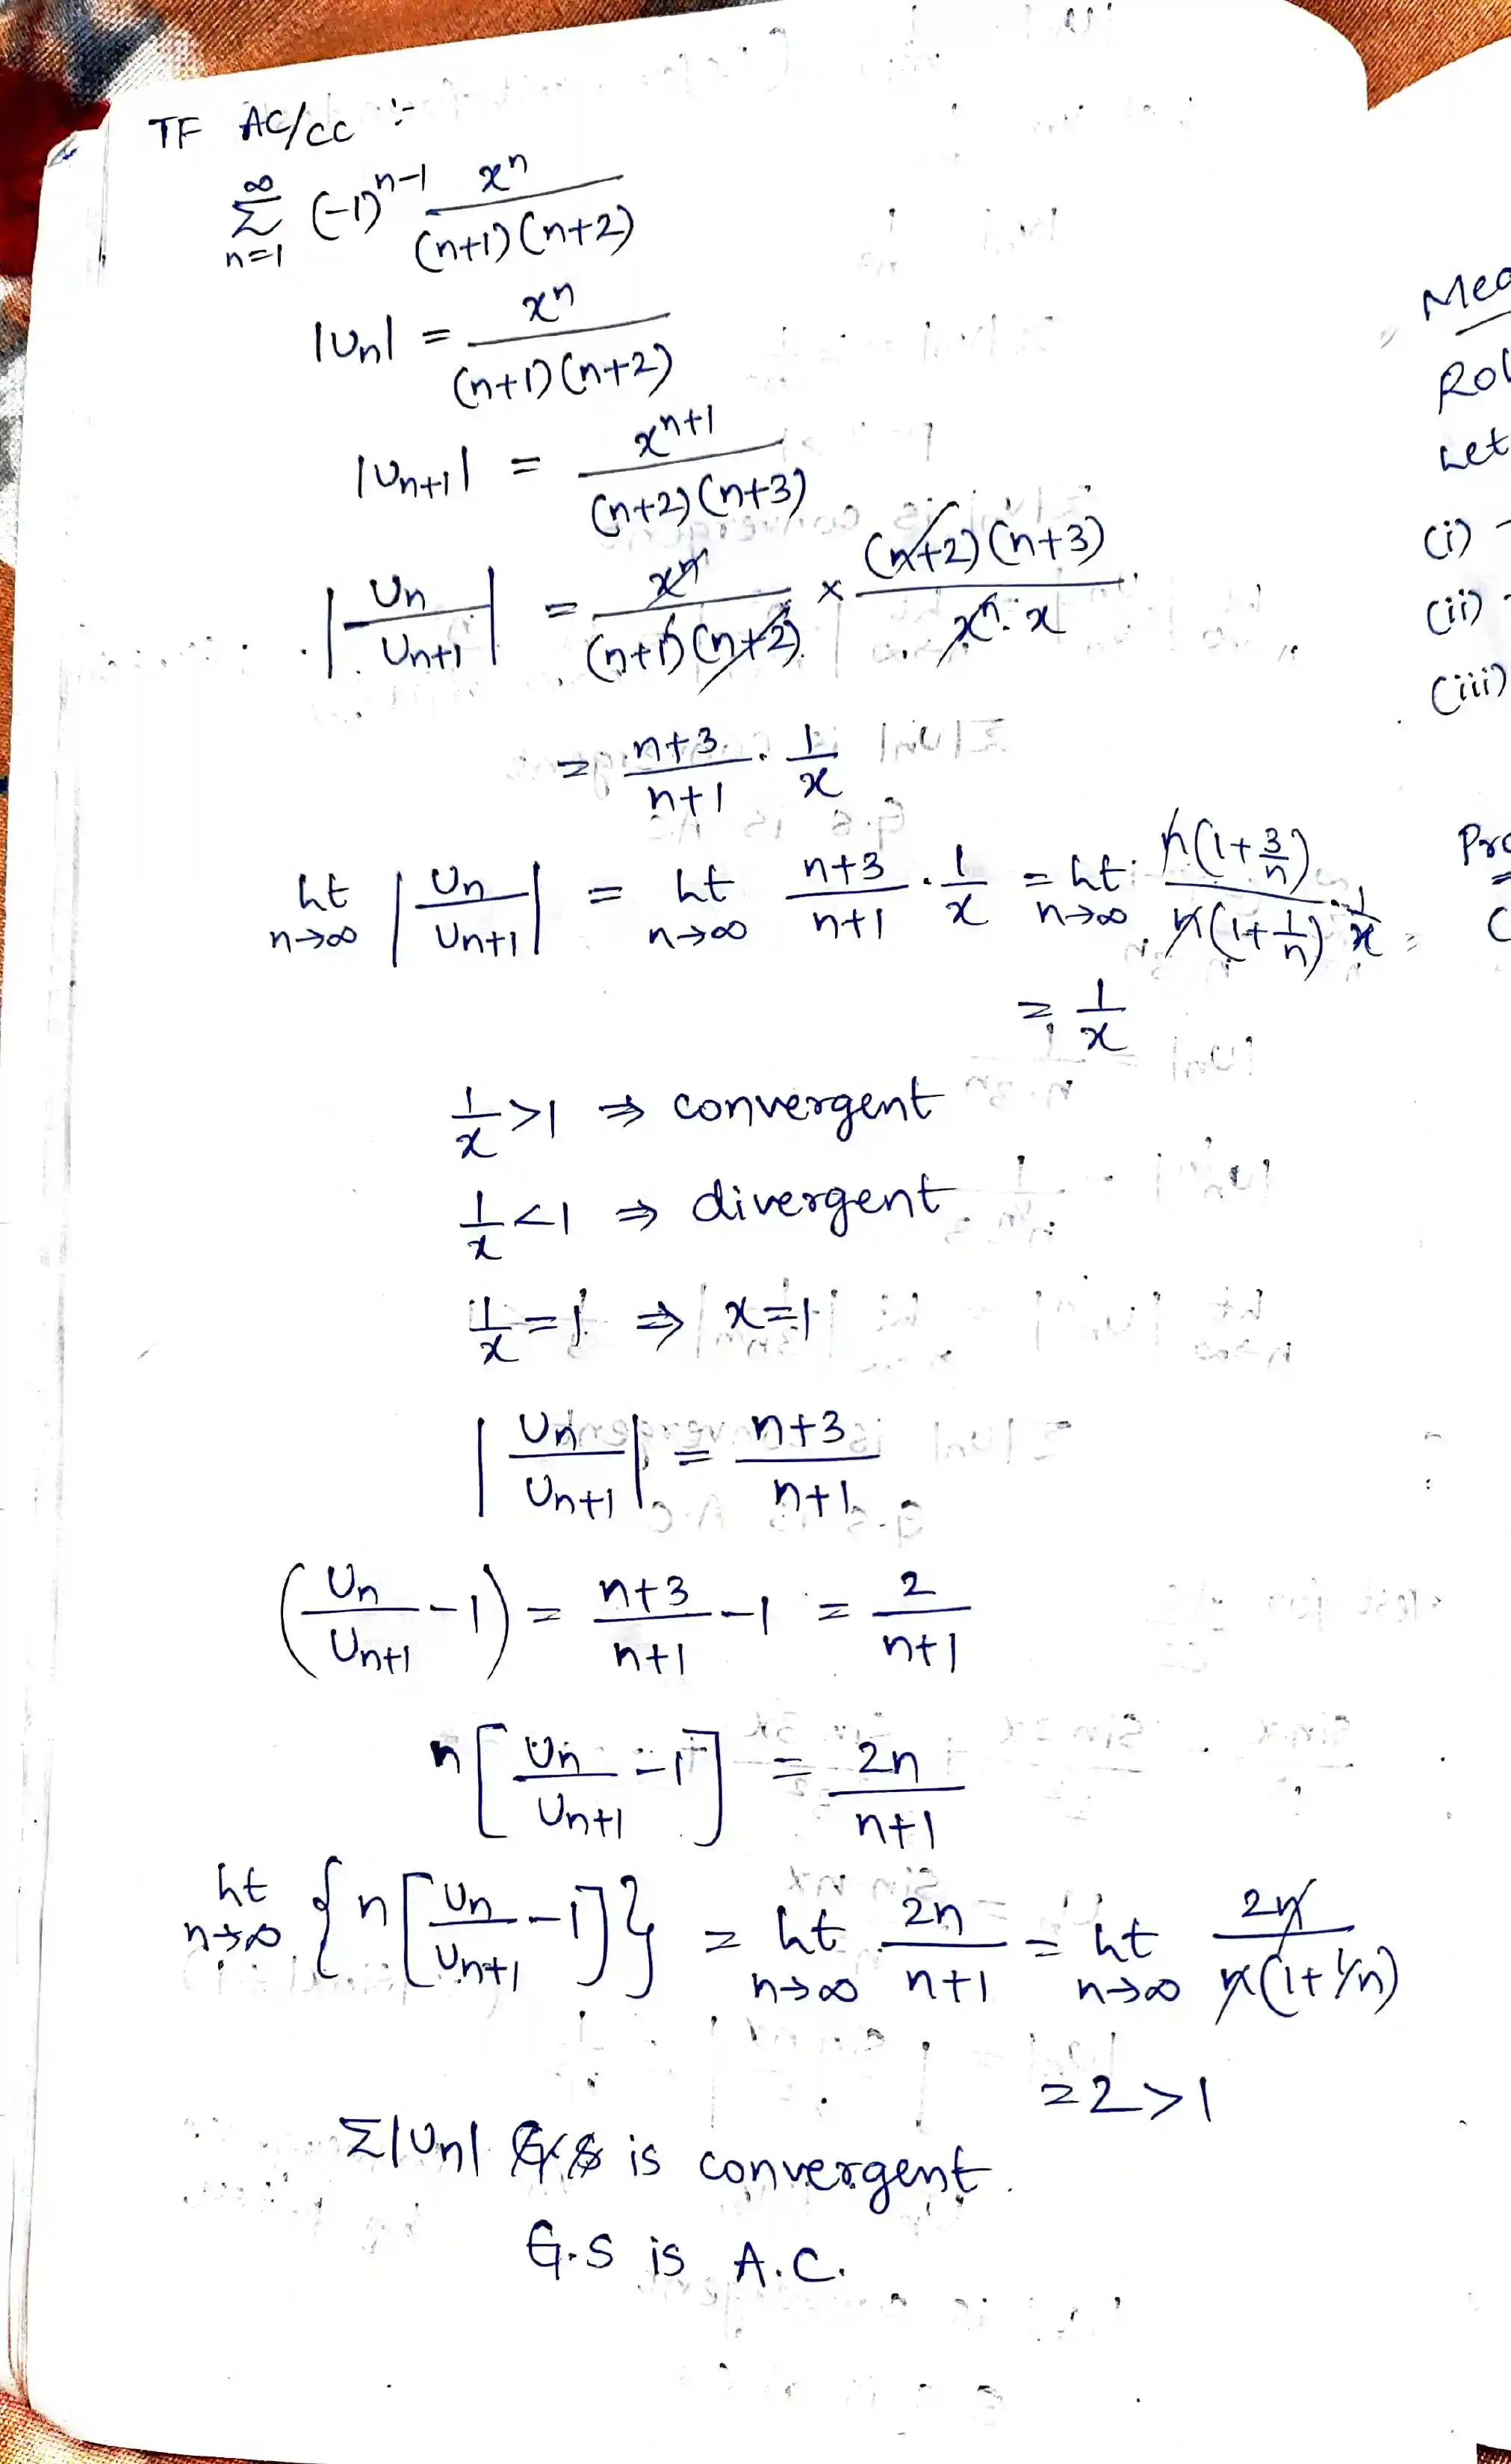 TF AC/CC :-
∞ Σ n=1 (-1)^(n-1) x^n / (n+1)(n+2)
|Un| = x^n / (n+1)(n+2)
|Un+1| = x^(n+1) / (n+2)(n+3)
|Un / Un+1| = x^n / (n+1)(n+2) × (n+2)(n+3) / x^n · x
= n+3 / n+1 · 1/x
Lt n→∞ |Un / Un+1| = Lt n→∞ n+3 / n+1 · 1/x = Lt n→∞ n(1+3/n) / n(1+1/n) · 1/x
= 1/x
1/x > 1 ⇒ convergent
1/x < 1 ⇒ divergent
1/x = 1 ⇒ x=1
|Un / Un+1| = n+3 / n+1
(Un / Un+1 - 1) = n+3 / n+1 - 1 = 2 / n+1
n[Un / Un+1 - 1] = 2n / n+1
Lt n→∞ {n[Un / Un+1 - 1]} = Lt n→∞ 2n / n+1 = Lt n→∞ 2n / n(1+1/n)
= 2 > 1
Σ|Un| is convergent.
G.S is A.C.
Let
(i)
(ii)
(iii)